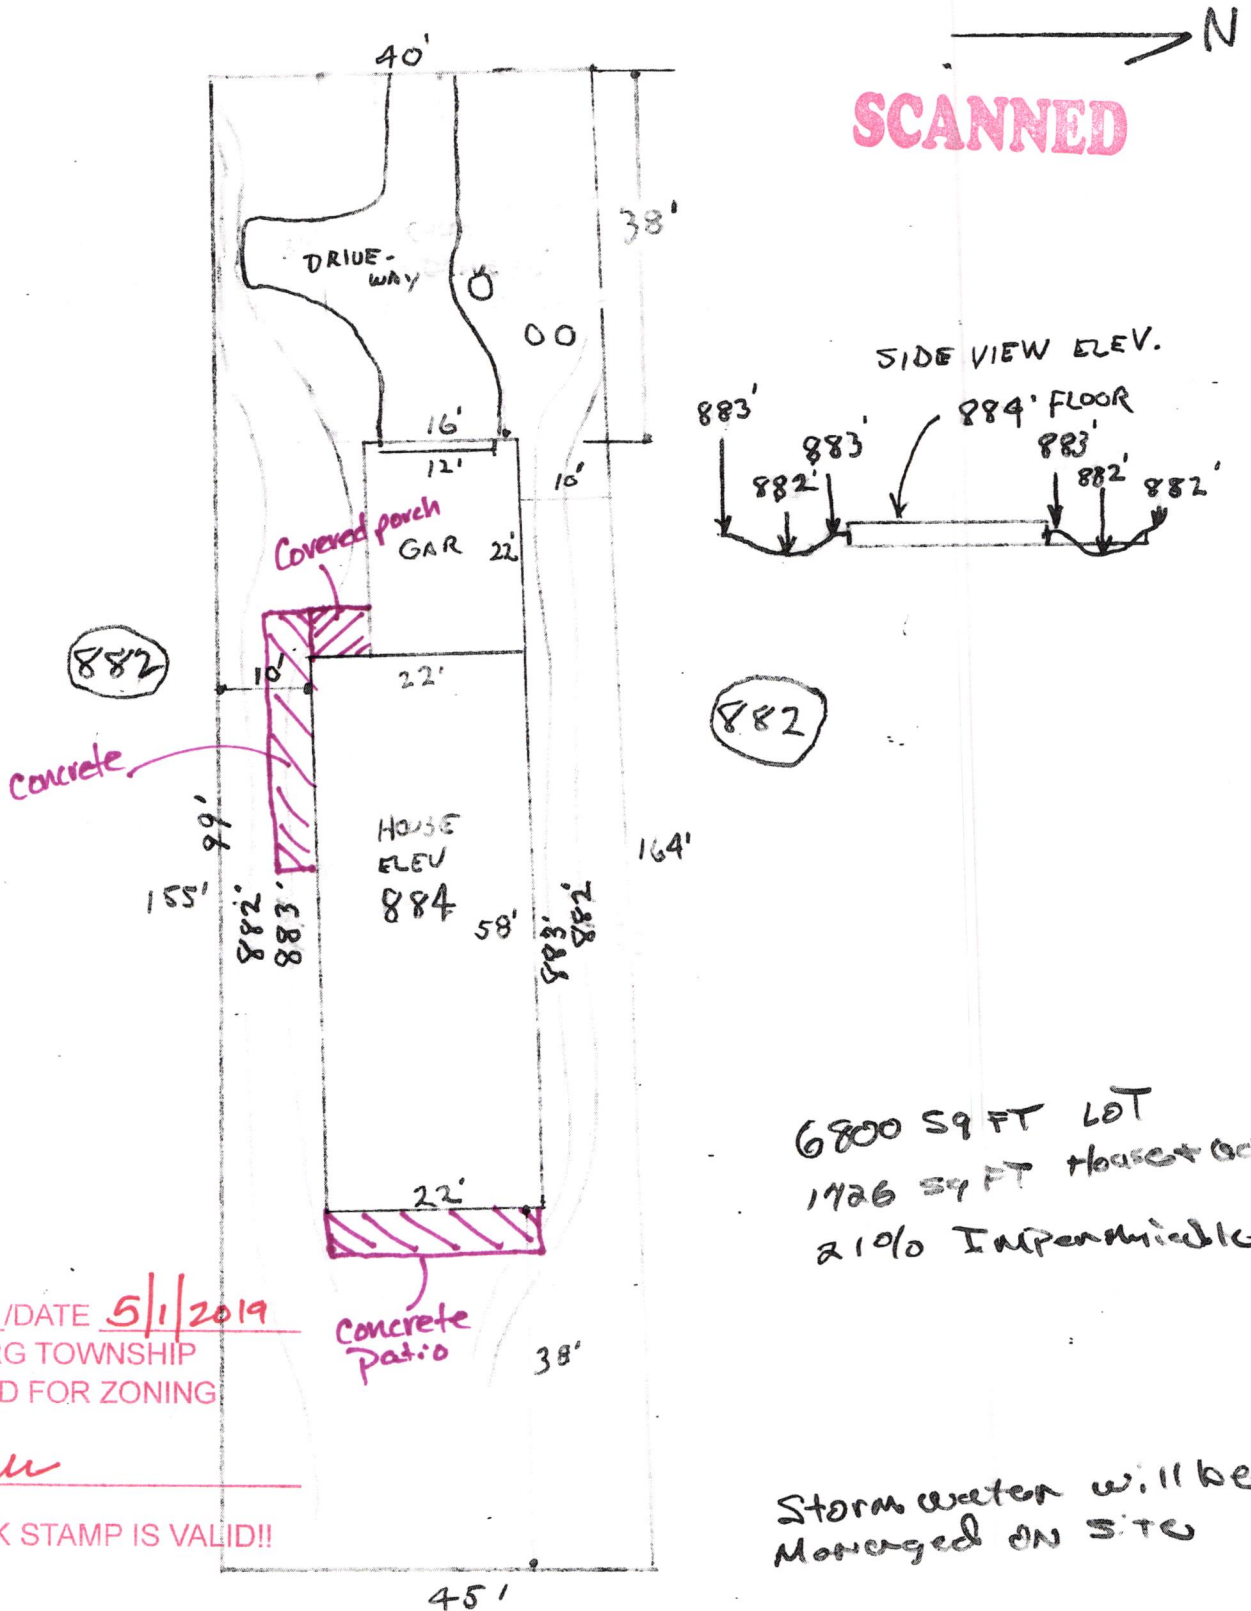 N
SCANNED
40'
38'
DRIVE-
WAY
SIDE VIEW ELEV.
884' FLOOR
883'
882'
883'
883'
882'
882'
16'
12'
10'
Covered porch
GAR
22'
882
10'
22'
882
concrete
99'
HOUSE
ELEV
884
155'
882'
883'
58'
883'
882'
164'
22'
6800 Sq FT LOT
1726 Sq FT House+
21%
/DATE 5/1/2019
RG TOWNSHIP
D FOR ZONING
concrete
patio
38'
K STAMP IS VALID!!
Storm water will be
Managed ON SiTe
45'